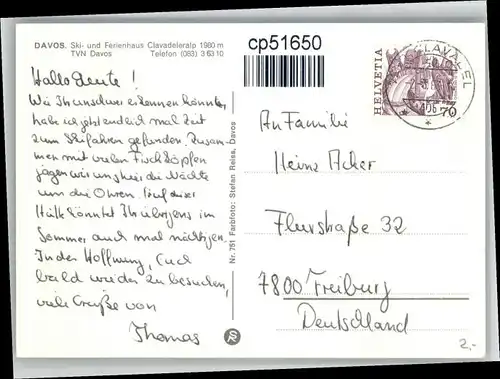 DAVOS. Ski- und Ferienhaus Clavadeleralp 1980 m
TVN Davos Telefon (083) 3 63 10
Hallo Leute!
Wie Ihr unschwer erkennen könnt,
hab ich jetzt endlich mal Zeit
zum Skifahren gefunden. Zusam-
men mit vielen Fischköpfen
jagen wir uns hier die Nächte
um die Ohren. Auf dieser
Hütte könntet Ihr übrigens im
Sommer auch mal nächtigen.
In der Hoffnung, Euch
bald wieder zu besuchen,
viele Grüße von
Thomas
Nr. 751 Farbfoto: Stefan Reiss, Davos
cp51650
HELVETIA
70
CLAVADEL
An Familie
Heinz Acker
Flurstraße 32
7800 Freiburg
Deutschland
2,-